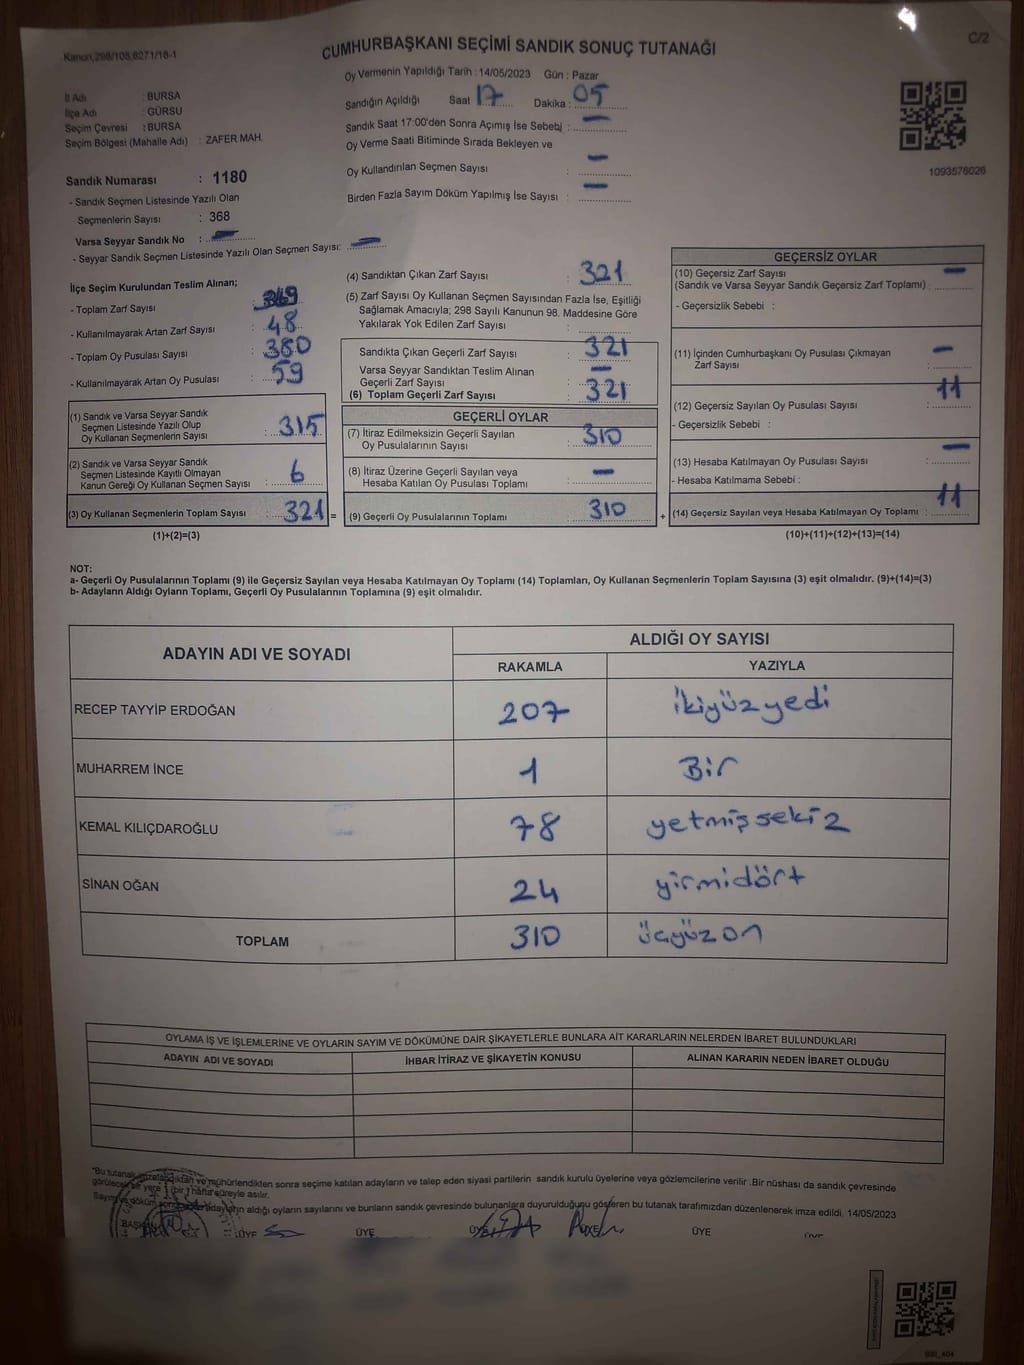 Kanun,298/105,6271/18-1
CUMHURBAŞKANI SEÇİMİ SANDIK SONUÇ TUTANAĞI
C/2
Oy Vermenin Yapıldığı Tarih : 14/05/2023 Gün : Pazar
İl Adı : BURSA
İlçe Adı : GÜRSU
Seçim Çevresi : BURSA
Seçim Bölgesi (Mahalle Adı) : ZAFER MAH.
Sandığın Açıldığı Saat 17 Dakika : 05
Sandık Saat 17:00'den Sonra Açımış İse Sebebi : -
Oy Verme Saati Bitiminde Sırada Bekleyen ve
Oy Kullandırılan Seçmen Sayısı : -
Birden Fazla Sayım Döküm Yapılmış İse Sayısı : -
1093576026
Sandık Numarası : 1180
- Sandık Seçmen Listesinde Yazılı Olan
Seçmenlerin Sayısı : 368
Varsa Seyyar Sandık No : -
- Seyyar Sandık Seçmen Listesinde Yazılı Olan Seçmen Sayısı: -
İlçe Seçim Kurulundan Teslim Alınan;
- Toplam Zarf Sayısı : 369
- Kullanılmayarak Artan Zarf Sayısı : 48
- Toplam Oy Pusulası Sayısı : 380
- Kullanılmayarak Artan Oy Pusulası : 59
(1) Sandık ve Varsa Seyyar Sandık
Seçmen Listesinde Yazılı Olup
Oy Kullanan Seçmenlerin Sayısı : 315
(2) Sandık ve Varsa Seyyar Sandık
Seçmen Listesinde Kayıtlı Olmayan
Kanun Gereği Oy Kullanan Seçmen Sayısı : 6
(3) Oy Kullanan Seçmenlerin Toplam Sayısı : 321 =
(1)+(2)=(3)
(4) Sandıktan Çıkan Zarf Sayısı : 321
(5) Zarf Sayısı Oy Kullanan Seçmen Sayısından Fazla İse, Eşitliği
Sağlamak Amacıyla; 298 Sayılı Kanunun 98. Maddesine Göre
Yakılarak Yok Edilen Zarf Sayısı :
Sandıkta Çıkan Geçerli Zarf Sayısı : 321
Varsa Seyyar Sandıktan Teslim Alınan
Geçerli Zarf Sayısı : -
(6) Toplam Geçerli Zarf Sayısı : 321
GEÇERLİ OYLAR
(7) İtiraz Edilmeksizin Geçerli Sayılan
Oy Pusulalarının Sayısı : 310
(8) İtiraz Üzerine Geçerli Sayılan veya
Hesaba Katılan Oy Pusulası Toplamı : -
(9) Geçerli Oy Pusulalarının Toplamı : 310 +
GEÇERSİZ OYLAR
(10) Geçersiz Zarf Sayısı -
(Sandık ve Varsa Seyyar Sandık Geçersiz Zarf Toplamı) :
- Geçersizlik Sebebi :
(11) İçinden Cumhurbaşkanı Oy Pusulası Çıkmayan
Zarf Sayısı : -
(12) Geçersiz Sayılan Oy Pusulası Sayısı : 11
- Geçersizlik Sebebi :
(13) Hesaba Katılmayan Oy Pusulası Sayısı : -
- Hesaba Katılmama Sebebi :
(14) Geçersiz Sayılan veya Hesaba Katılmayan Oy Toplamı : 11
(10)+(11)+(12)+(13)=(14)
NOT:
a- Geçerli Oy Pusulalarının Toplamı (9) ile Geçersiz Sayılan veya Hesaba Katılmayan Oy Toplamı (14) Toplamları, Oy Kullanan Seçmenlerin Toplam Sayısına (3) eşit olmalıdır. (9)+(14)=(3)
b- Adayların Aldığı Oyların Toplamı, Geçerli Oy Pusulalarının Toplamına (9) eşit olmalıdır.
ADAYIN ADI VE SOYADI ALDIĞI OY SAYISI
RAKAMLA YAZIYLA
RECEP TAYYİP ERDOĞAN 207 ikiyüzyedi
MUHARREM İNCE 1 Bir
KEMAL KILIÇDAROĞLU 78 yetmişsekiz
SİNAN OĞAN 24 yirmidört
TOPLAM 310 üçyüzon
OYLAMA İŞ VE İŞLEMLERİNE VE OYLARIN SAYIM VE DÖKÜMÜNE DAİR ŞİKAYETLERLE BUNLARA AİT KARARLARIN NELERDEN İBARET BULUNDUKLARI
ADAYIN ADI VE SOYADI İHBAR İTİRAZ VE ŞİKAYETİN KONUSU ALINAN KARARIN NEDEN İBARET OLDUĞU
"Bu tutanak imzalandıktan ve mühürlendikten sonra seçime katılan adayların ve talep eden siyasi partilerin sandık kurulu üyelerine veya gözlemcilerine verilir .Bir nüshası da sandık çevresinde
görülecek bir yere 1 (bir) hafta süreyle asılır.
Sayım ve döküm sonucu adayların aldığı oyların sayılarını ve bunların sandık çevresinde bulunanlara duyurulduğunu gösteren bu tutanak tarafımızdan düzenlenerek imza edildi. 14/05/2023
BAŞKAN ÜYE ÜYE ÜYE ÜYE ÜYE